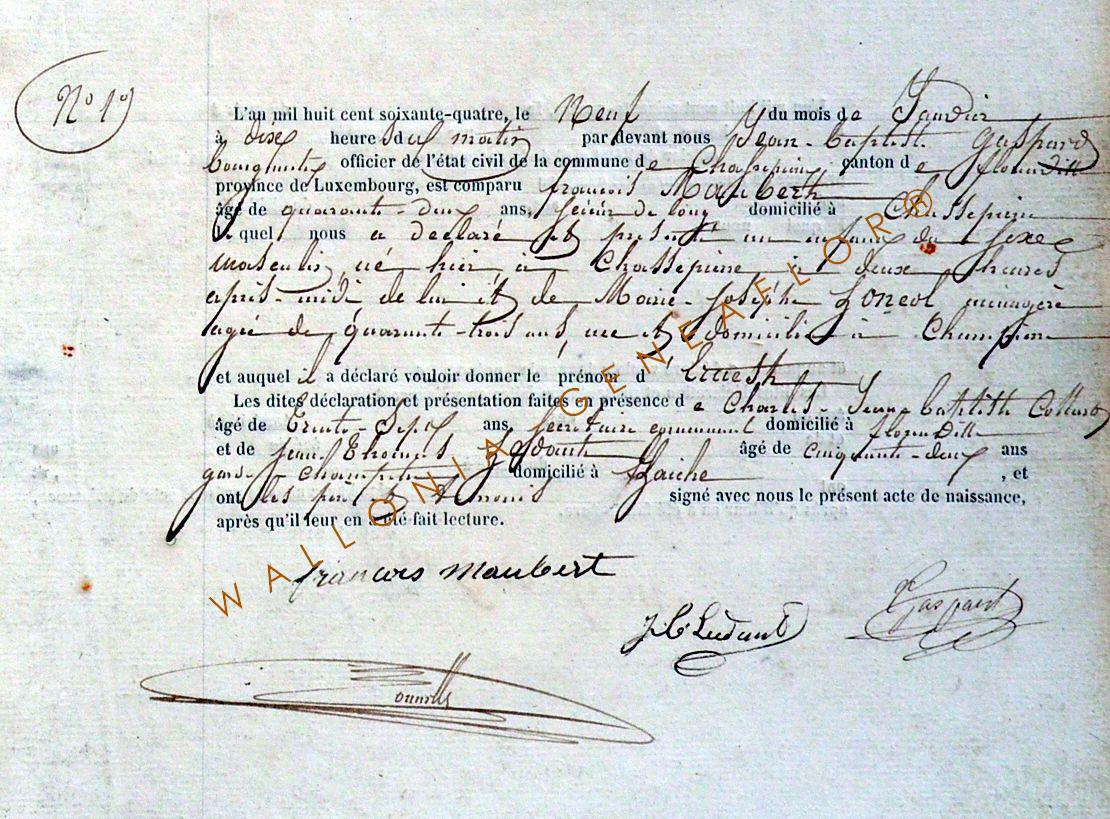 N° 19
L'an mil huit cent soixante-quatre, le Neuf du mois de Janvier
à dix heures du matin par devant nous Jean-Baptiste Gaspard
Bourgmestre officier de l'état civil de la commune de Chassepierre canton de florenville
province de Luxembourg, est comparu françois Maubert
âgé de quarante-deux ans, scieur de long domicilié à Chassepierre
le quel nous a déclaré et présenté un enfant du sexe
masculin, né hier, à Chassepierre à deux heures
après-midi de lui et de Marie-Josèphe ménagère
agée de quarante-trois ans, née et domiciliée à
et auquel il a déclaré vouloir donner le prénom d' Ernest
Les dites déclaration et présentation faites en présence de Charles-Jean-Baptiste
âgé de trente-sept ans, secrétaire communal domicilié à florenville
et de Jean Thomas âgé de cinquante-deux ans
garde champêtre domicilié à Laiche, et
ont les père et témoins signé avec nous le présent acte de naissance,
après qu'il leur en a été fait lecture.
françois Maubert
Gaspard
WALLONIA GENEAFLOR®